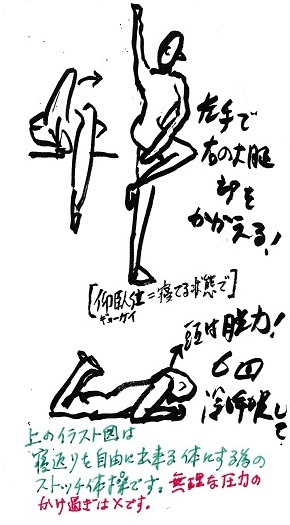 左手で
右の大腿
部を
かかえる!
[仰臥位=寝てる状態で]
ギョーガイ
頭は脱力!
6回
深呼吸して
上のイラスト図は
寝返りを自由に出来る体にする為の
ストッチ体操です。無理な圧力の
かけ過ぎは×です。